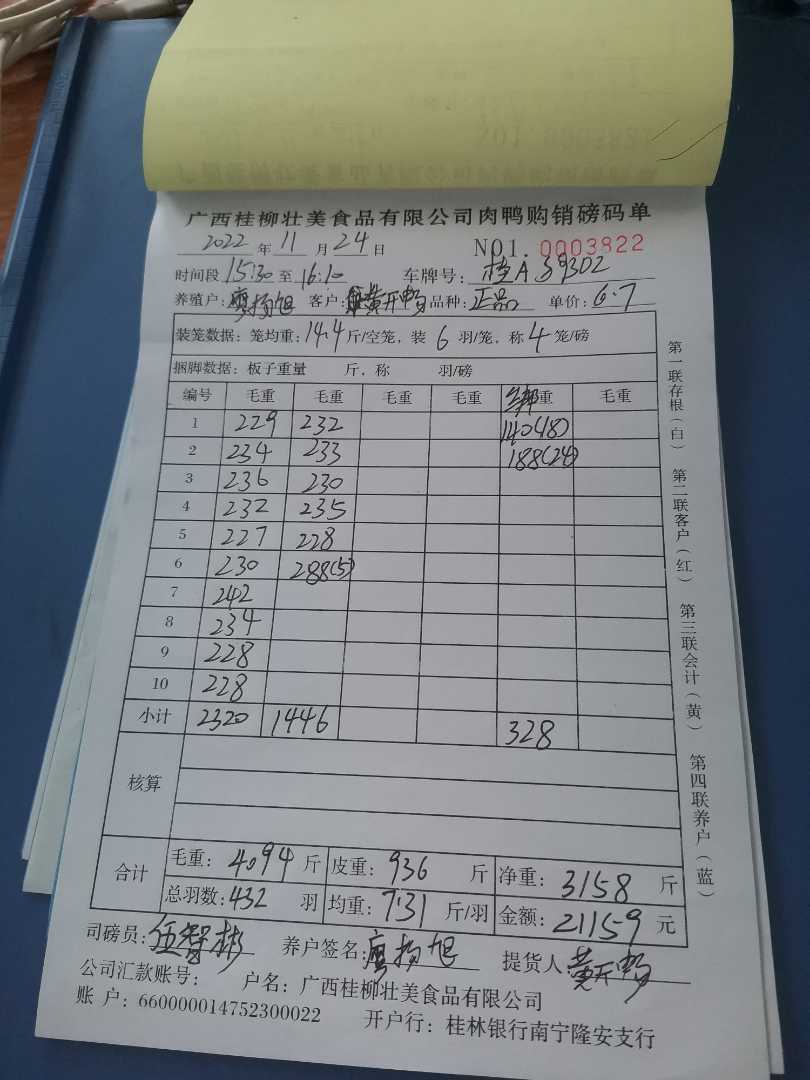 广西桂柳壮美食品有限公司肉鸭购销磅码单
2022年11月24日 NO1.0003822
时间段15:30至16:10 车牌号:桂A S93D2
养殖户:廖扬旭 客户:黄开鸭 品种:正品 单价:6.7
装笼数据:笼均重:14.4斤/空笼,装6羽/笼,称4笼/磅
捆脚数据:板子重量 斤,称 羽/磅
编号 毛重 毛重 毛重 毛重 绑重 毛重
1 229 232 140(18)
2 234 233 188(24)
3 236 230
4 232 235
5 227 228
6 230 288(5)
7 242
8 234
9 228
10 228
小计 2320 1446 328
核算
合计 毛重:4094斤 皮重:936斤 净重:3158斤
总羽数:432羽 均重:7.31斤/羽 金额:21159元
司磅员:伍智彬 养户签名:廖扬旭 提货人黄开鸭
公司汇款账号: 户名:广西桂柳壮美食品有限公司
账 户:660000014752300022 开户行:桂林银行南宁隆安支行
第一联存根(白) 第二联客户(红) 第三联会计(黄) 第四联养户(蓝)